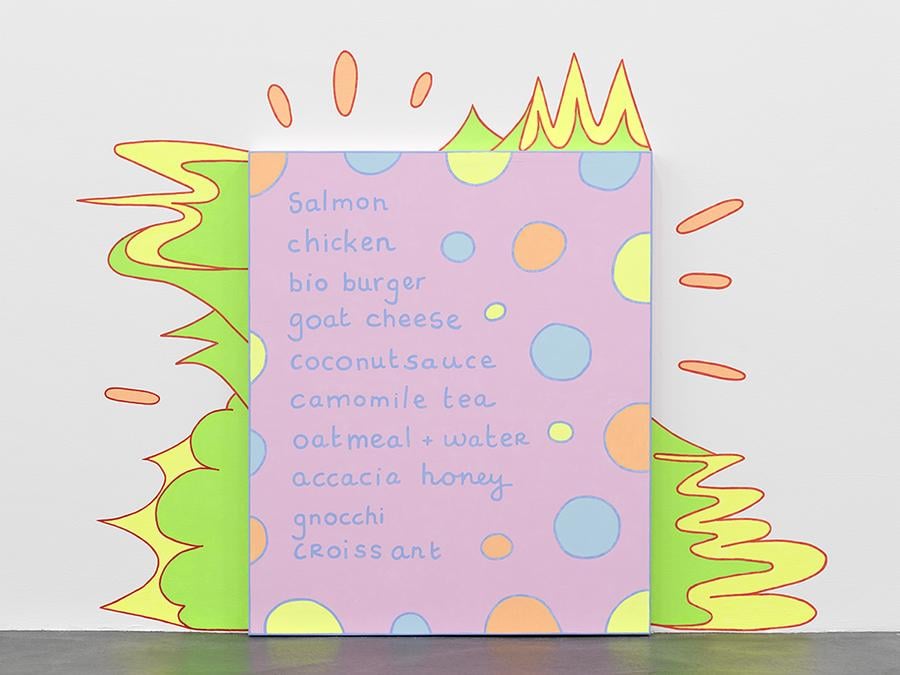 Salmon
chicken
bio burger
goat cheese
coconutsauce
camomile tea
oatmeal + water
accacia honey
gnocchi
croissant